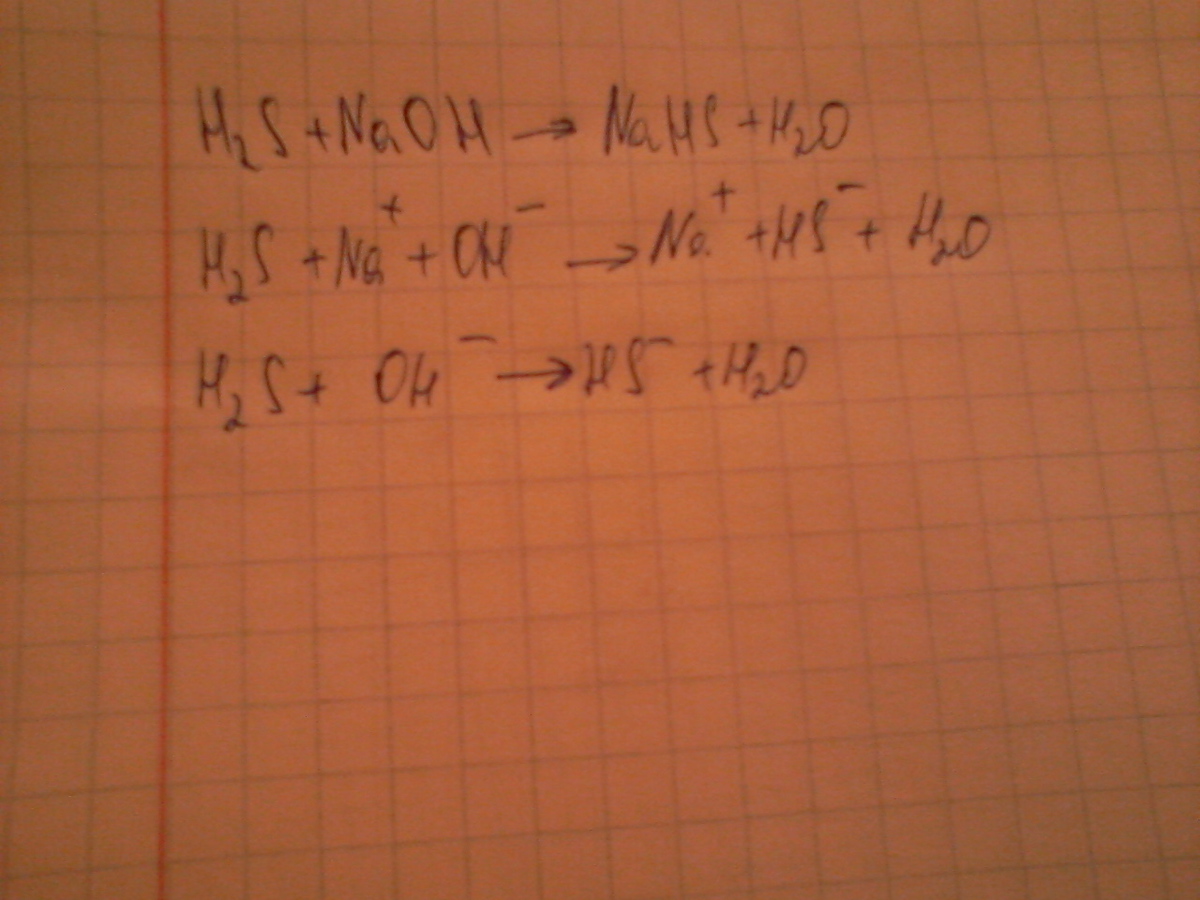 H₂S + NaOH → NaHS + H₂O
H₂S + Na⁺ + OH⁻ → Na⁺ + HS⁻ + H₂O
H₂S + OH⁻ → HS⁻ + H₂O